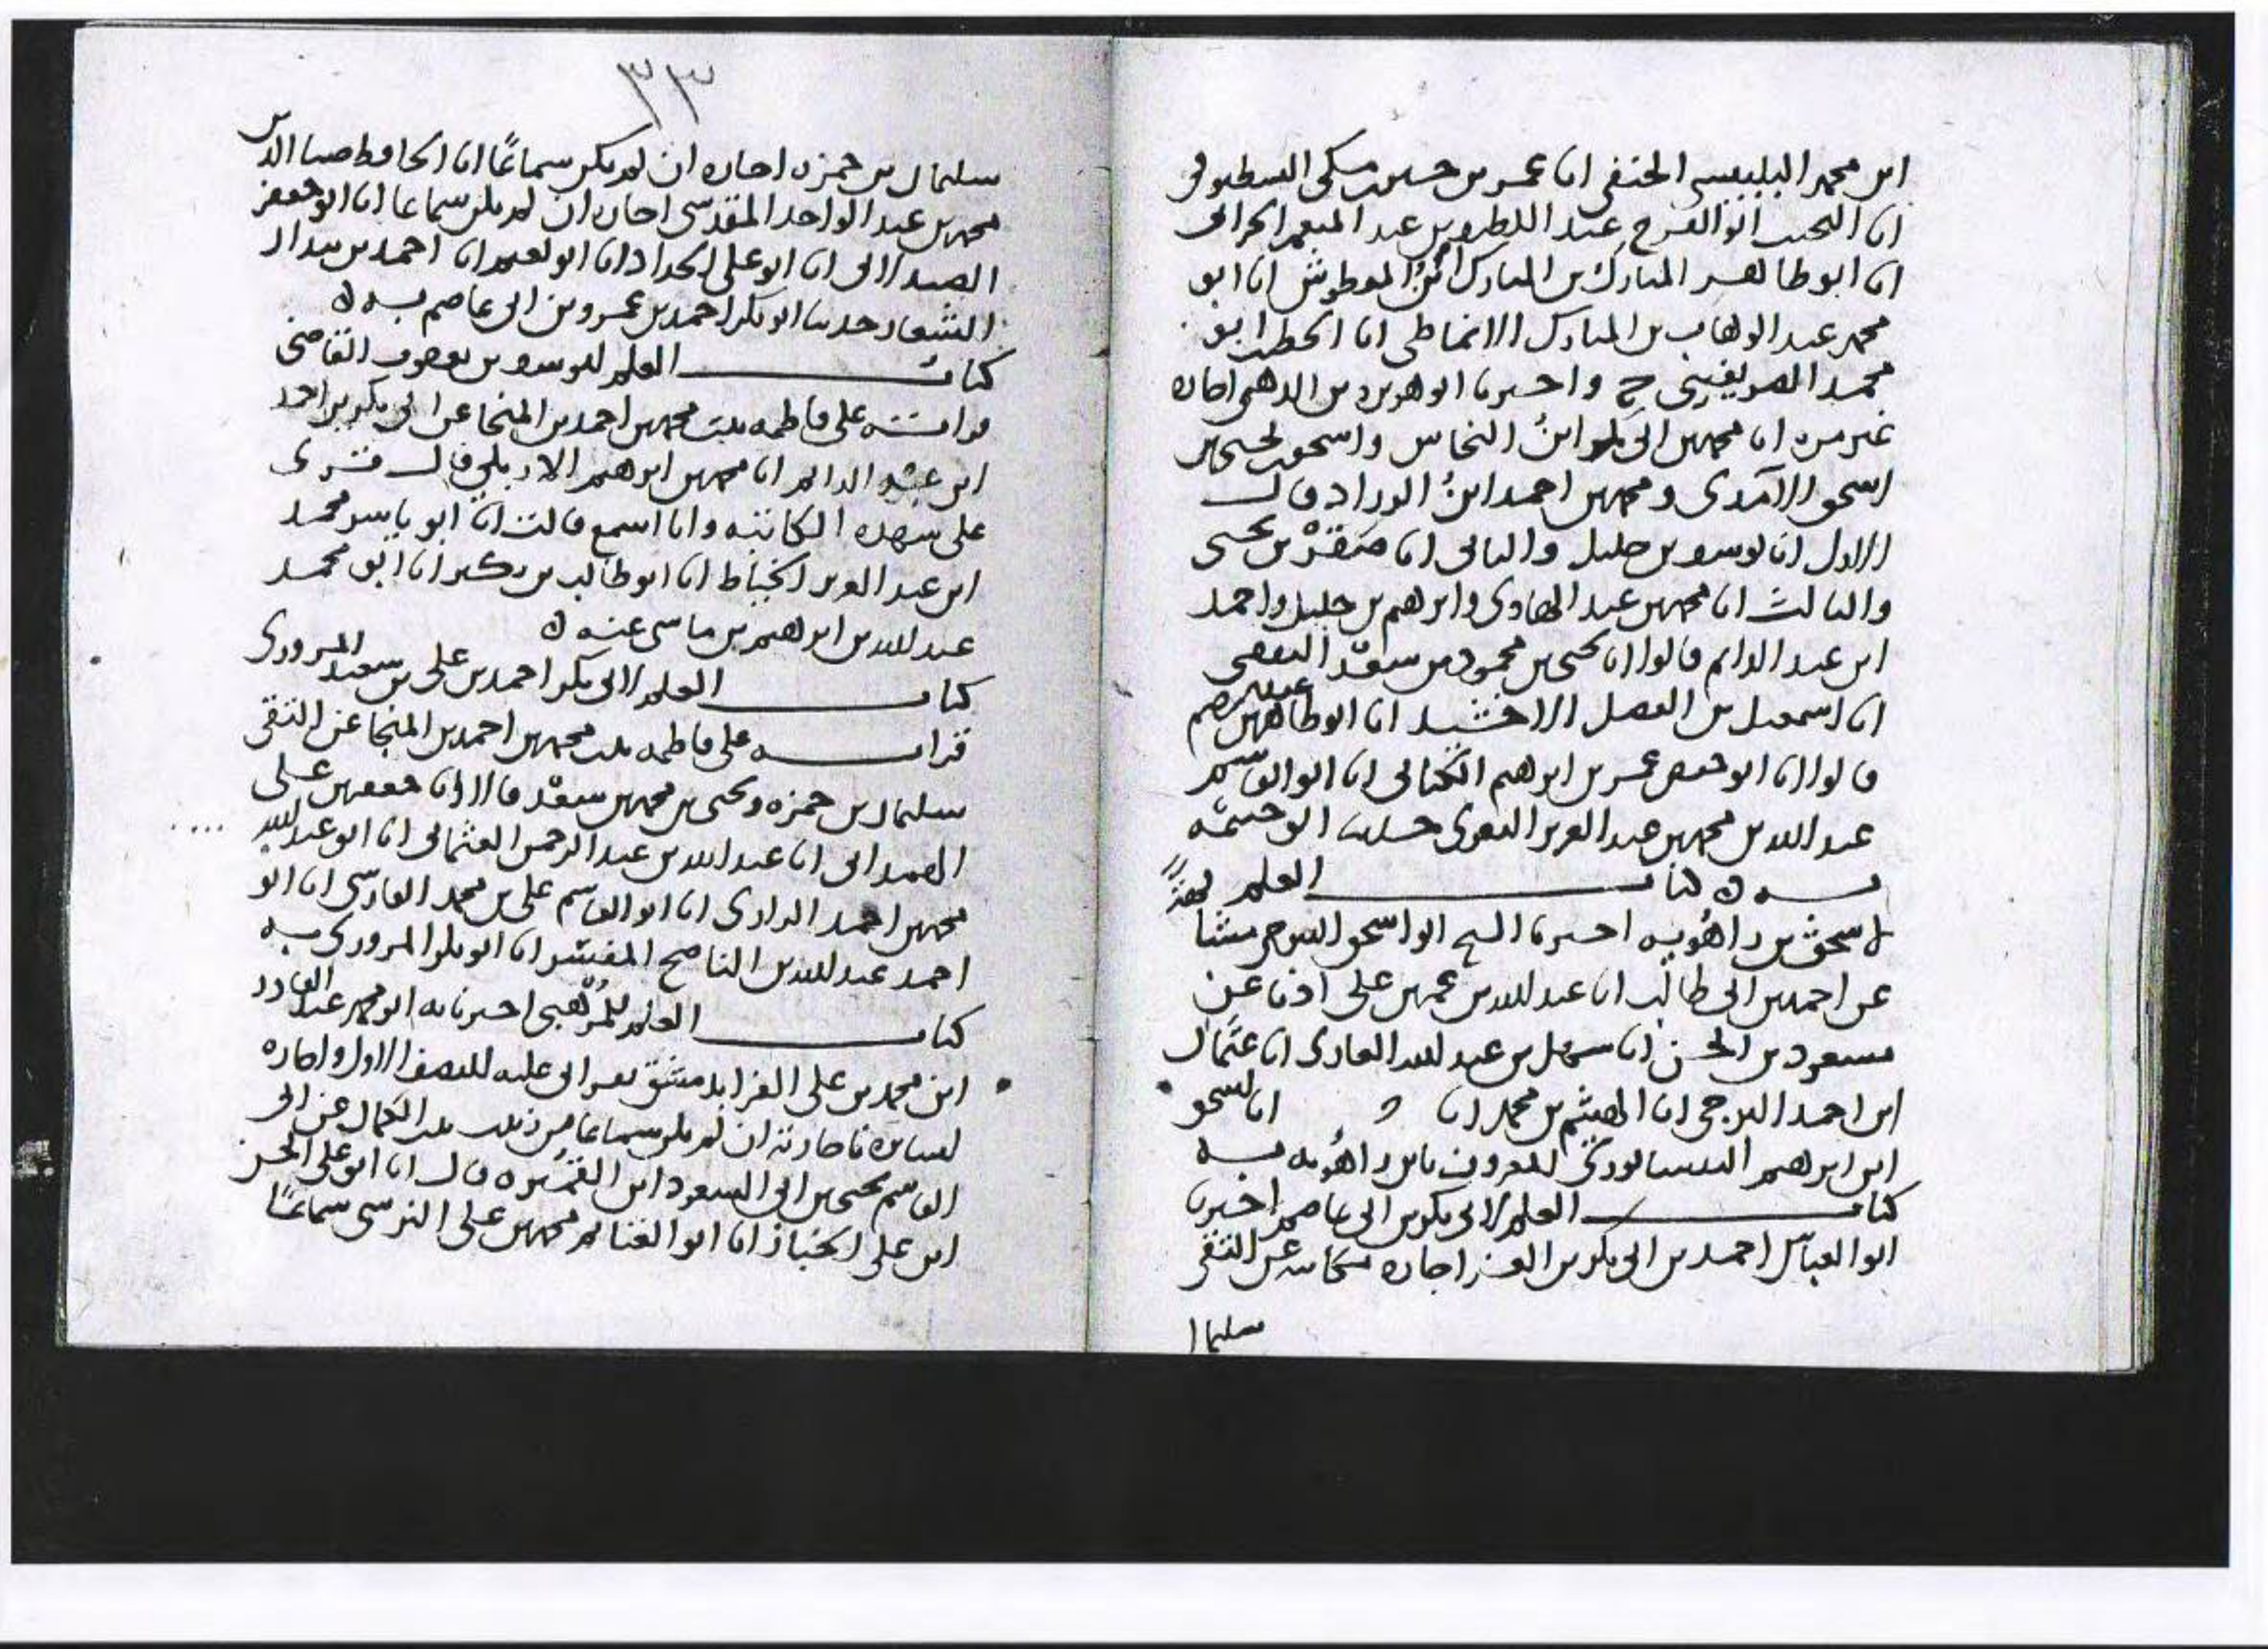 ابن محمد البلبيسي الحنفي انا عمر بن حسين بن مكي الشطنوفي
انا النجيب ابو الفرج عبد اللطيف بن عبد المنعم الحراني
انا ابو طاهر المبارك بن المبارك ابن المعطوش انا ابو
محمد عبد الوهاب بن المبارك الانماطي انا الخطيب ابو
محمد الصريفيني ح واخبرنا ابو هريره بن الذهبي اجازه
غير مره انا محمد بن ابي بكر ابن النحاس واسحق بن يحيى بن
اسحق الآمدي ومحمد بن احمد ابن الوراد قال
الاول انا يوسف بن خليل والثاني انا صقر بن يحيى
والثالث انا محمد بن عبد الهادي وابرهيم بن خليل واحمد
ابن عبد الدائم قالوا انا يحيى بن محمود بن سعد الثقفي
انا اسمعيل بن الفضل الاخشيد انا ابو طاهر بن عبد الرحيم
قالوا انا ابو حفص عمر بن ابرهيم الكتاني انا ابو القاسم
عبد الله بن محمد بن عبد العزيز البغوي حدثنا ابو خيثمه
به ه كتاب العلم
لاسحق بن راهُويه اخبرنا الشيخ ابو اسحق التنوخي مشافهةً
عن احمد بن ابي طالب انا عبد الله بن عمر بن علي اذنا عن
مسعود بن الحسن انا سهل بن عبد الله الغازي انا عثمان
ابن احمد البرجي انا الهيثم بن محمد انا و انا اسحق
ابن ابرهيم النيسابوري المعروف بابن راهُويه به
كتاب العلم لابي بكر بن ابي عاصم اخبرنا
ابو العباس احمد بن ابي بكر بن العز اجازه مكاتبه عن التقي
سليما
٣٣
سليمان بن حمزه اجازه ان لم يكن سماعًا انا الحافظ ضيا الدين
محمد بن عبد الواحد المقدسي اجازه ان لم يكن سماعا انا ابو جعفر
الصيدلاني انا ابو علي الحداد انا ابو نعيم انا احمد بن بندار
الشعار حدثنا ابو بكر احمد بن عمرو بن ابي عاصم به ه
كتاب العلم ليوسف بن يعقوب القاضي
قراته على فاطمه بنت محمد بن احمد بن المنجا عن ابي بكر بن احمد
ابن عبد الدائم انا محمد بن ابرهيم الاربلي قال قرى
على شهده الكاتبه وانا اسمع قالت انا ابو ياسر محمد
ابن عبد العزيز الخياط انا ابو طالب بن بكير انا ابو محمد
عبد الله بن ابرهيم بن ماسي عنه ه
كتاب العلم لابي بكر احمد بن علي بن سعيد المروزي
قراته على فاطمه بنت محمد بن احمد بن المنجا عن التقي
سليمان بن حمزه ويحيى بن محمد بن سعد قالا انا جعفر بن علي
الهمداني انا عبد الله بن عبد الرحمن العثماني انا ابو عبد الله
محمد بن احمد الرازي انا ابو القاسم علي بن محمد الفارسي انا ابو
احمد عبد الله بن الناصح المفسر انا ابو بكر المروزي به
كتاب العلم للمُرْهبي اخبرنا به ابو محمد عبد القادر
ابن محمد بن علي الفرا بدمشق بقراتي عليه للنصف الاول واجازه
لسائره باجازته ان لم يكن سماعا من زينب بنت الكمال عن ابي
القاسم يحيى بن ابي السعود ابن القُمَّيره قال انا ابو علي الحسن
ابن علي الخباز انا ابو الغنائم محمد بن علي النرسي سماعًا